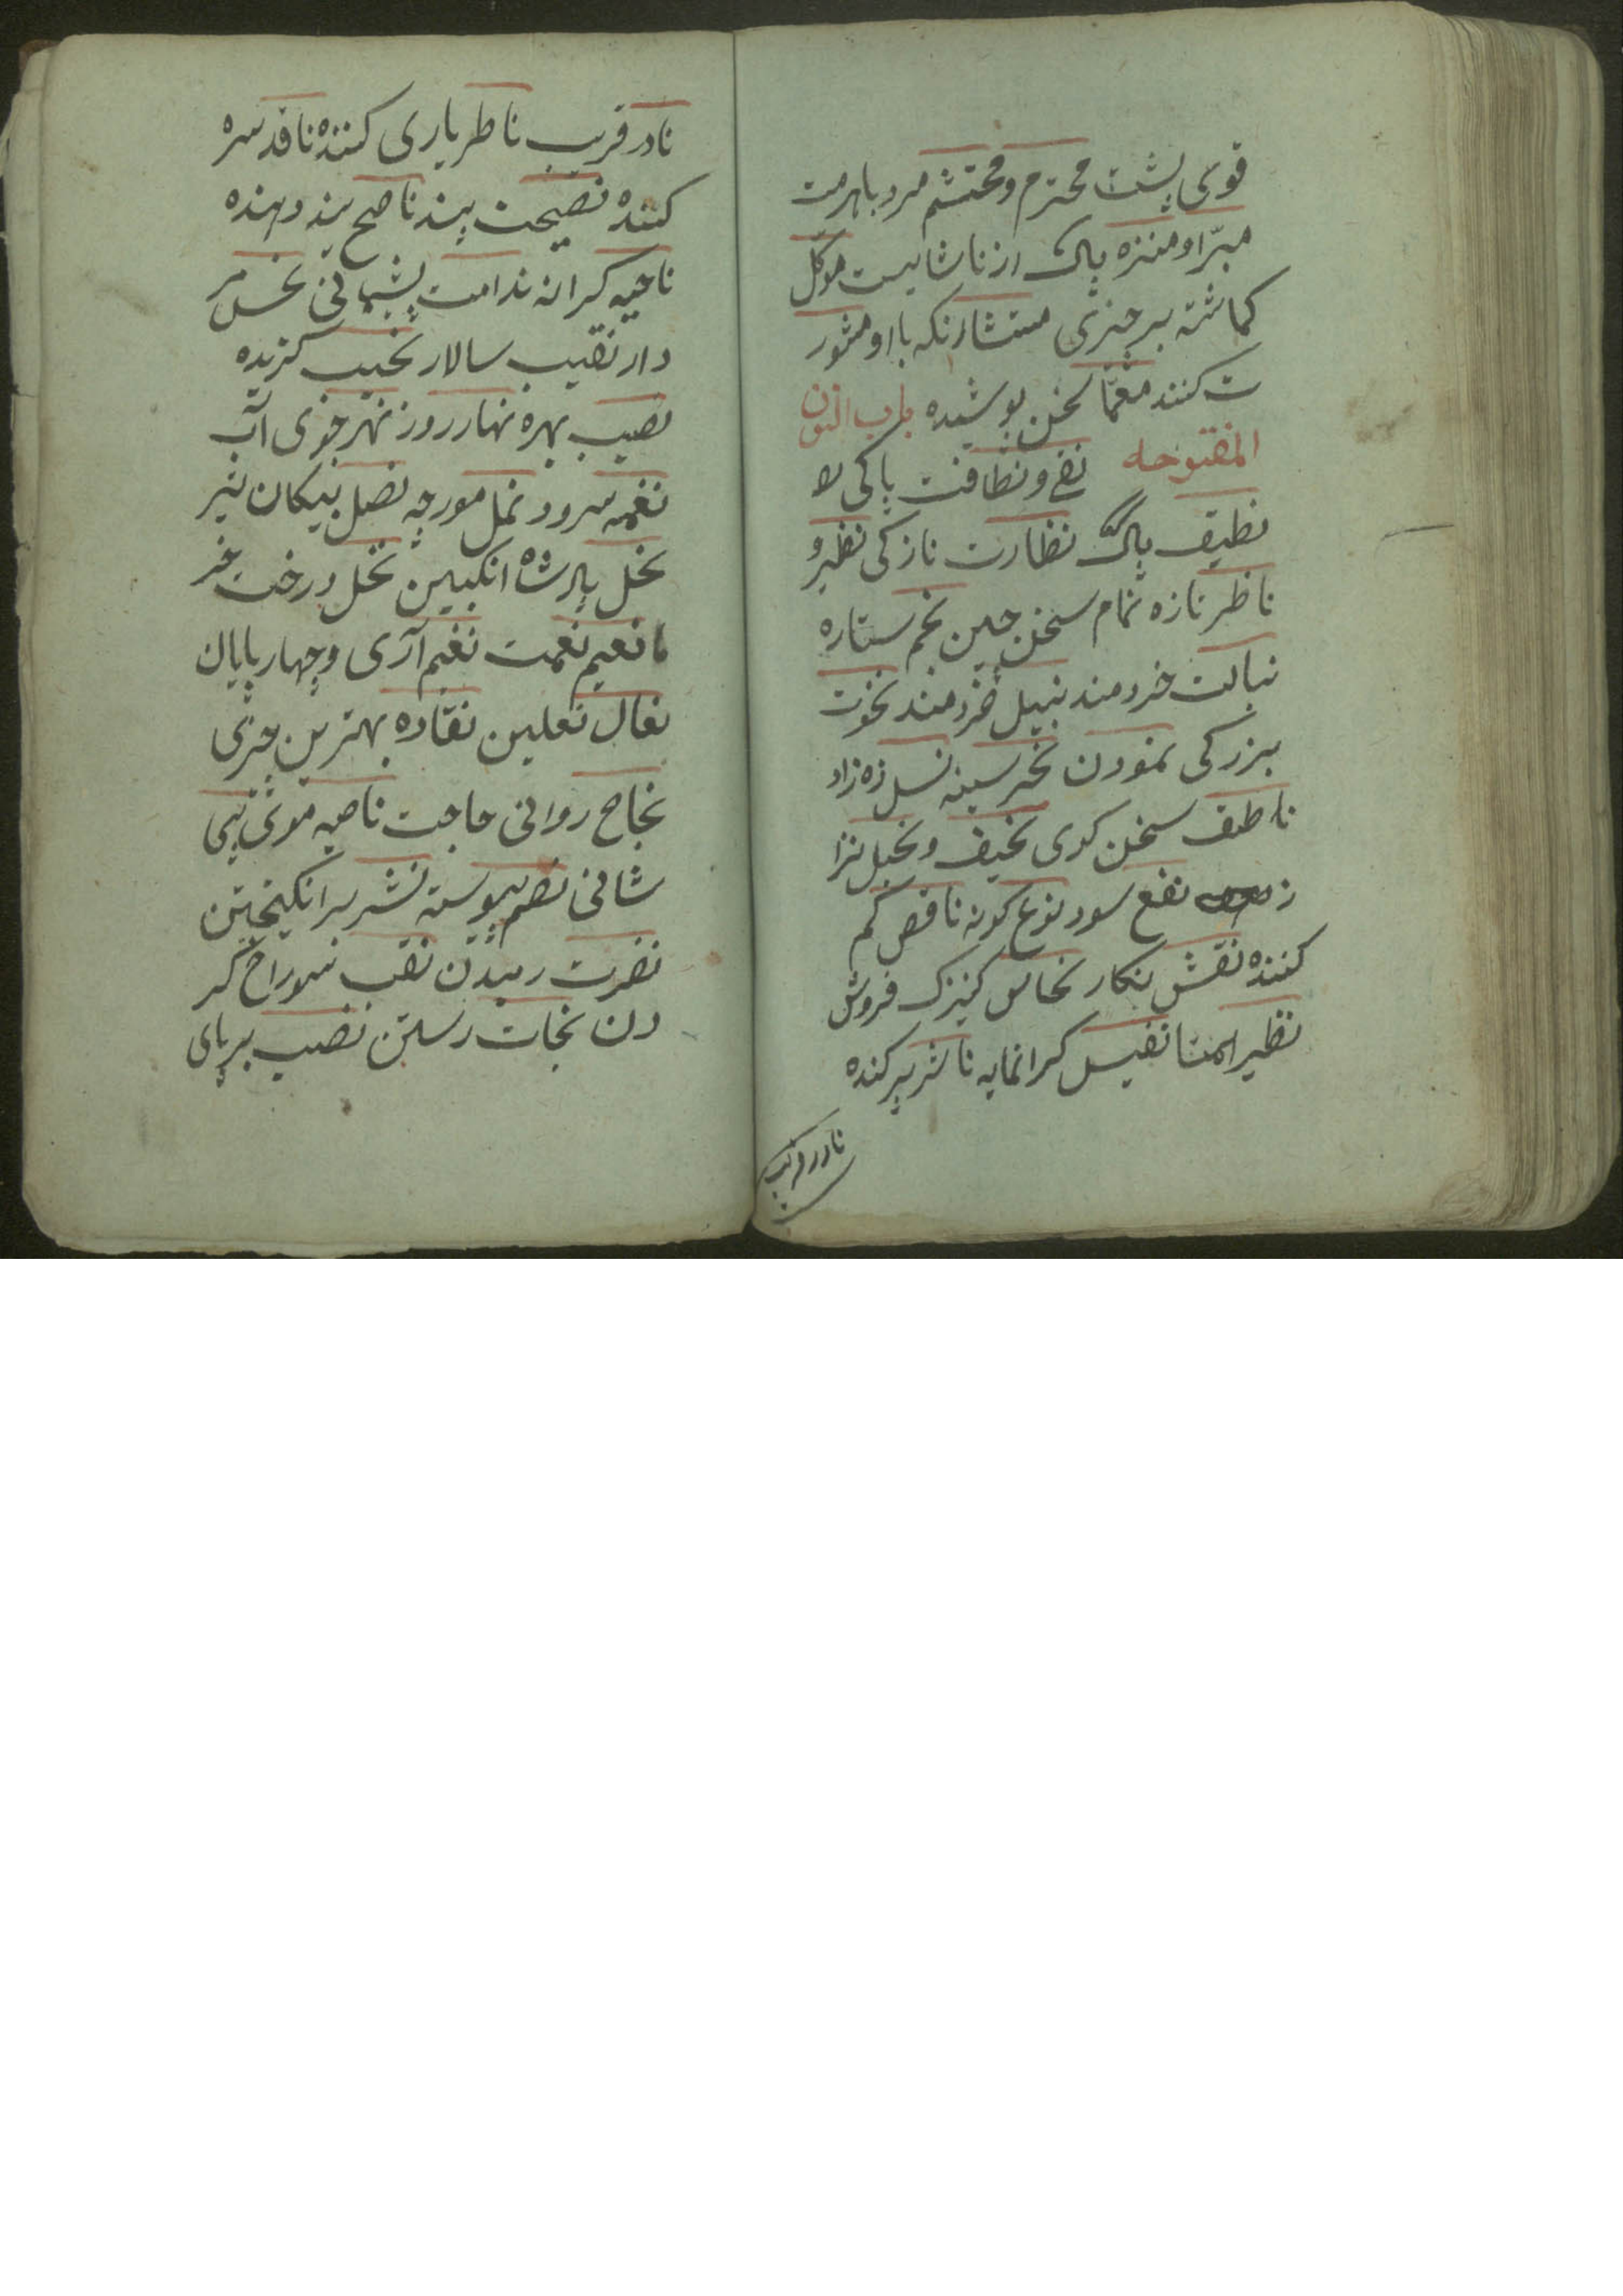 قوی پشت محترم و محتشم مرد باهرمت
مبرّا و منزه پاک از ناشایست موکّل
کماشته بر چیزی مستشار انکه با او مشور
ت کنند معمّا سخن پوشیده باب النون
المفتوحه نقی و نظافت پاکی لا
نظیف پاک نظارت نازکی نظیر و
ناظر تازه نمام سخن چین نجم ستاره
نبالت خردمند نبیل خردمند نخوت
بزرکی نمودن نحر سینه نسل زه زاد
ناطق سخن کوی نحیف و نحیل نزا
ر نفع سود نوع کونه ناقص کم
کننده نقش نکار نخاس کنیزک فروش
نظیر همتا نفیس کرانمایه ناشر پرکنده
نادر قریب
نادر قریب ناطر یاری کننده ناقد سره
کننده نصیحت پند ناصح پند دهنده
ناحیه کرانه ندامت پشیمانی نحس مر
دار نقیب سالار نجیب کزیده
نصیب بهره نهار روز نهر جوی آب
نغمه سرود نمل مورچه نصل پیکان تیر
نحل پادشاه انکبین نخل درخت خر
ما نعیم نعمت نعم آری و چهارپایان
نعال نعلین نقاده بهترین چیزی
نجاح روائی حاجت ناصیه موی پی
شانی نضم پیوسته نشر برانکیختن
نضرت رمیدن نقب سوراخ کر
دن نجات رستن نصب برپای